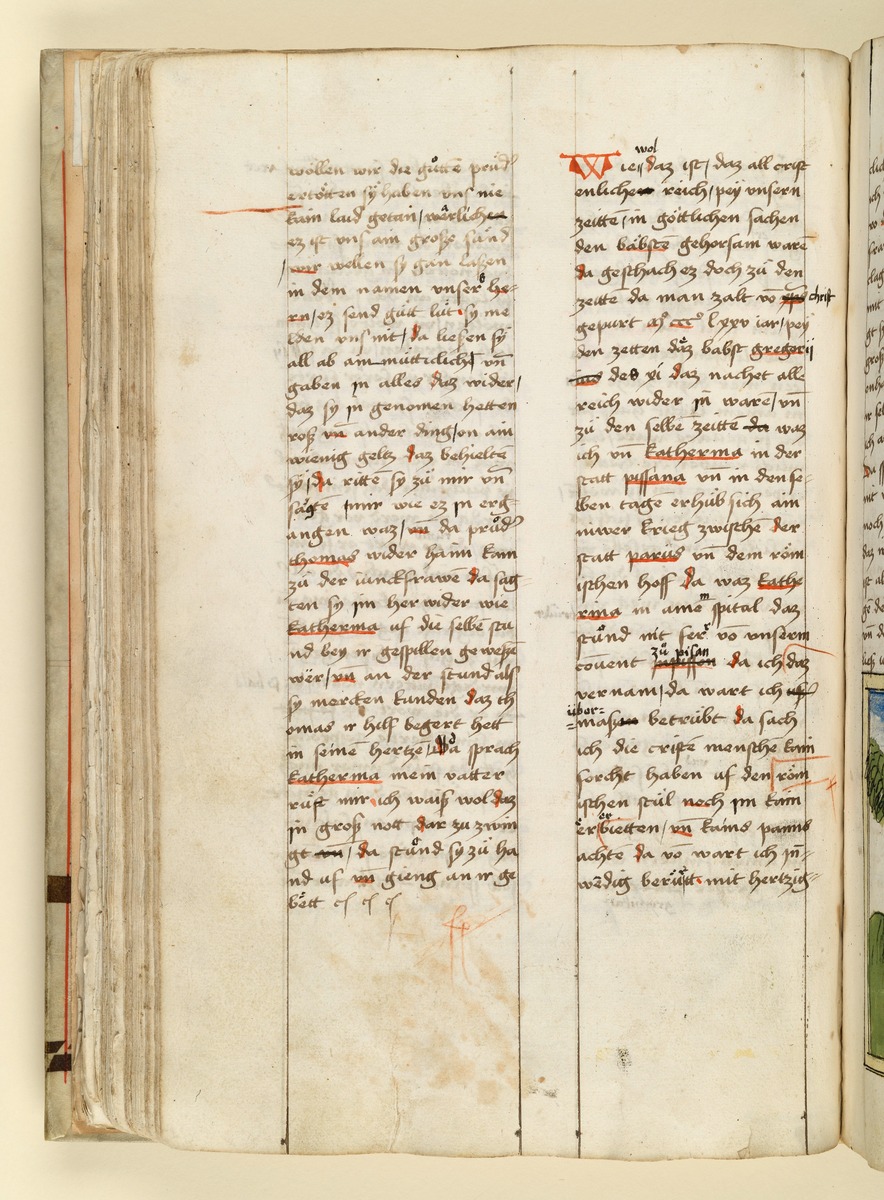 wöllen wir die gůttē průd
ertötten sÿ haben vns nie
kain laid getan / wärlichen
ez ist vns ain grosse sünd
/ wir wellen sy gan lassen
in dem namen vnser he=
rn / ez send gůtt lüt sy me
lden vns nit / da liessen sÿ
all ab ain mütticlich vn̄
gaben in alles daz wider /
daz sy in genomen hetten
ross vn̄ ander ding / on ain
wienig geltz daz behieltē
sÿ / da rittē sy zů mir vn̄
sagtē mir wie ez in erg=
angen waz / vn̄ da průd
thomas wider haim kam
zů der iunckfrawē da sag=
ten sy im her wider wie
katherina uf die selbē stu
nd bey ir gespillen gewessē
wër / vn̄ an der stund als
sy mercken kunden daz th
omas ir hilf begert hett
in seinē hertzē / da sprach
katherina mein vatter
růft mir ich waiss wol daz
in gross nott dar zu zwin
gt vn̄ / da stůnd sy zů ha
nd uf vn̄ gieng an ir ge
bett
wol
Wie daz ist / daz all crist
enlichen reich / pey vnsern
zeitte / in göttlichen sachen
den bäbstē gehorsam warē
da geschach ez doch zů den
zeitte da man zalt vō christ
gepurt mo ccco lxxv iar / pey
den zeiten daz babst gregorij
ius des xi daz nachet alle
reich wider in ware / vn̄
zů den selbē zeittē da waz
ich vn̄ katherina in der
statt pissana vn̄ in den se=
lben tagē erhůb sich ain
niwer krieg zwischē der
statt parus vn̄ dem röm
ischen hoff da waz kathe
rina in aine spital daz
stůnd nit ferr vō vnserm
zů pisan
cōuent da ich daz
vernam / da wart ich
über=
=massen betrübt da sach
ich die cristē menschē kain
forcht haben uf den röm
ischen stůl noch im kain
er erbietten / vn̄ kains panns
achtē da vō wart ich in=
wēdig berütt mit hertzig=